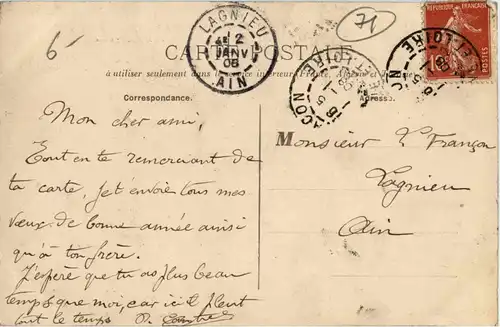 6
71
LAGNIEU
2
JANV
08
AIN
CARTE POSTALE
à utiliser seulement dans le service intérieur (France, Algérie et
REPUBLIQUE FRANÇAISE
10
POSTES
Correspondance.
Adresse.
Mon cher ami,
Tout en te remerciant de
ta carte, je t'envoie tous mes
vœux de bonne année ainsi
qu'à ton frère.
J'espère que tu as plus beau
temps que moi, car ici il pleut
tout le temps P.
Monsieur L. Françon
Lagnieu
Ain
MACON
ET LOIRE